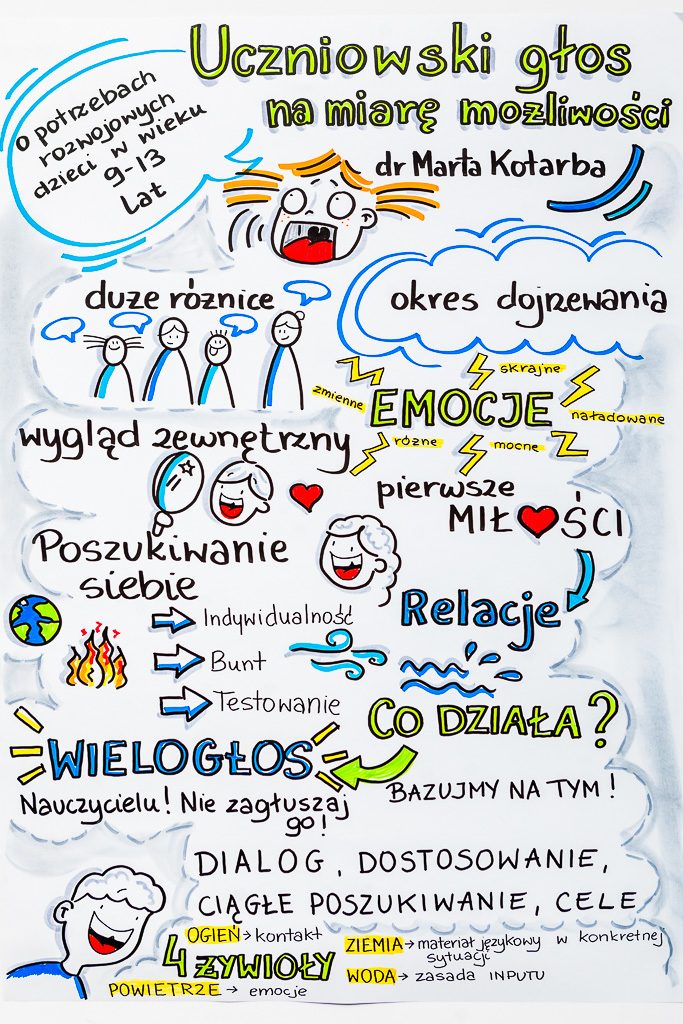 Uczniowski głos
na miarę możliwości
dr Marta Kotarba
o potrzebach
rozwojowych
dzieci w wieku
9-13
lat
duże różnice
okres dojrzewania
EMOCJE
zmienne
skrajne
naładowane
różne
mocne
wygląd zewnętrzny
pierwsze
MIŁOŚCI
Poszukiwanie
siebie
Relacje
Indywidualność
Bunt
Testowanie
CO DZIAŁA?
WIELOGŁOS
BAZUJMY NA TYM!
Nauczycielu! Nie zagłuszaj
go!
DIALOG, DOSTOSOWANIE,
CIĄGŁE POSZUKIWANIE, CELE
4 ŻYWIOŁY
OGIEŃ → kontakt
POWIETRZE → emocje
ZIEMIA → materiał językowy w konkretnej
sytuacji
WODA → zasada INPUTU